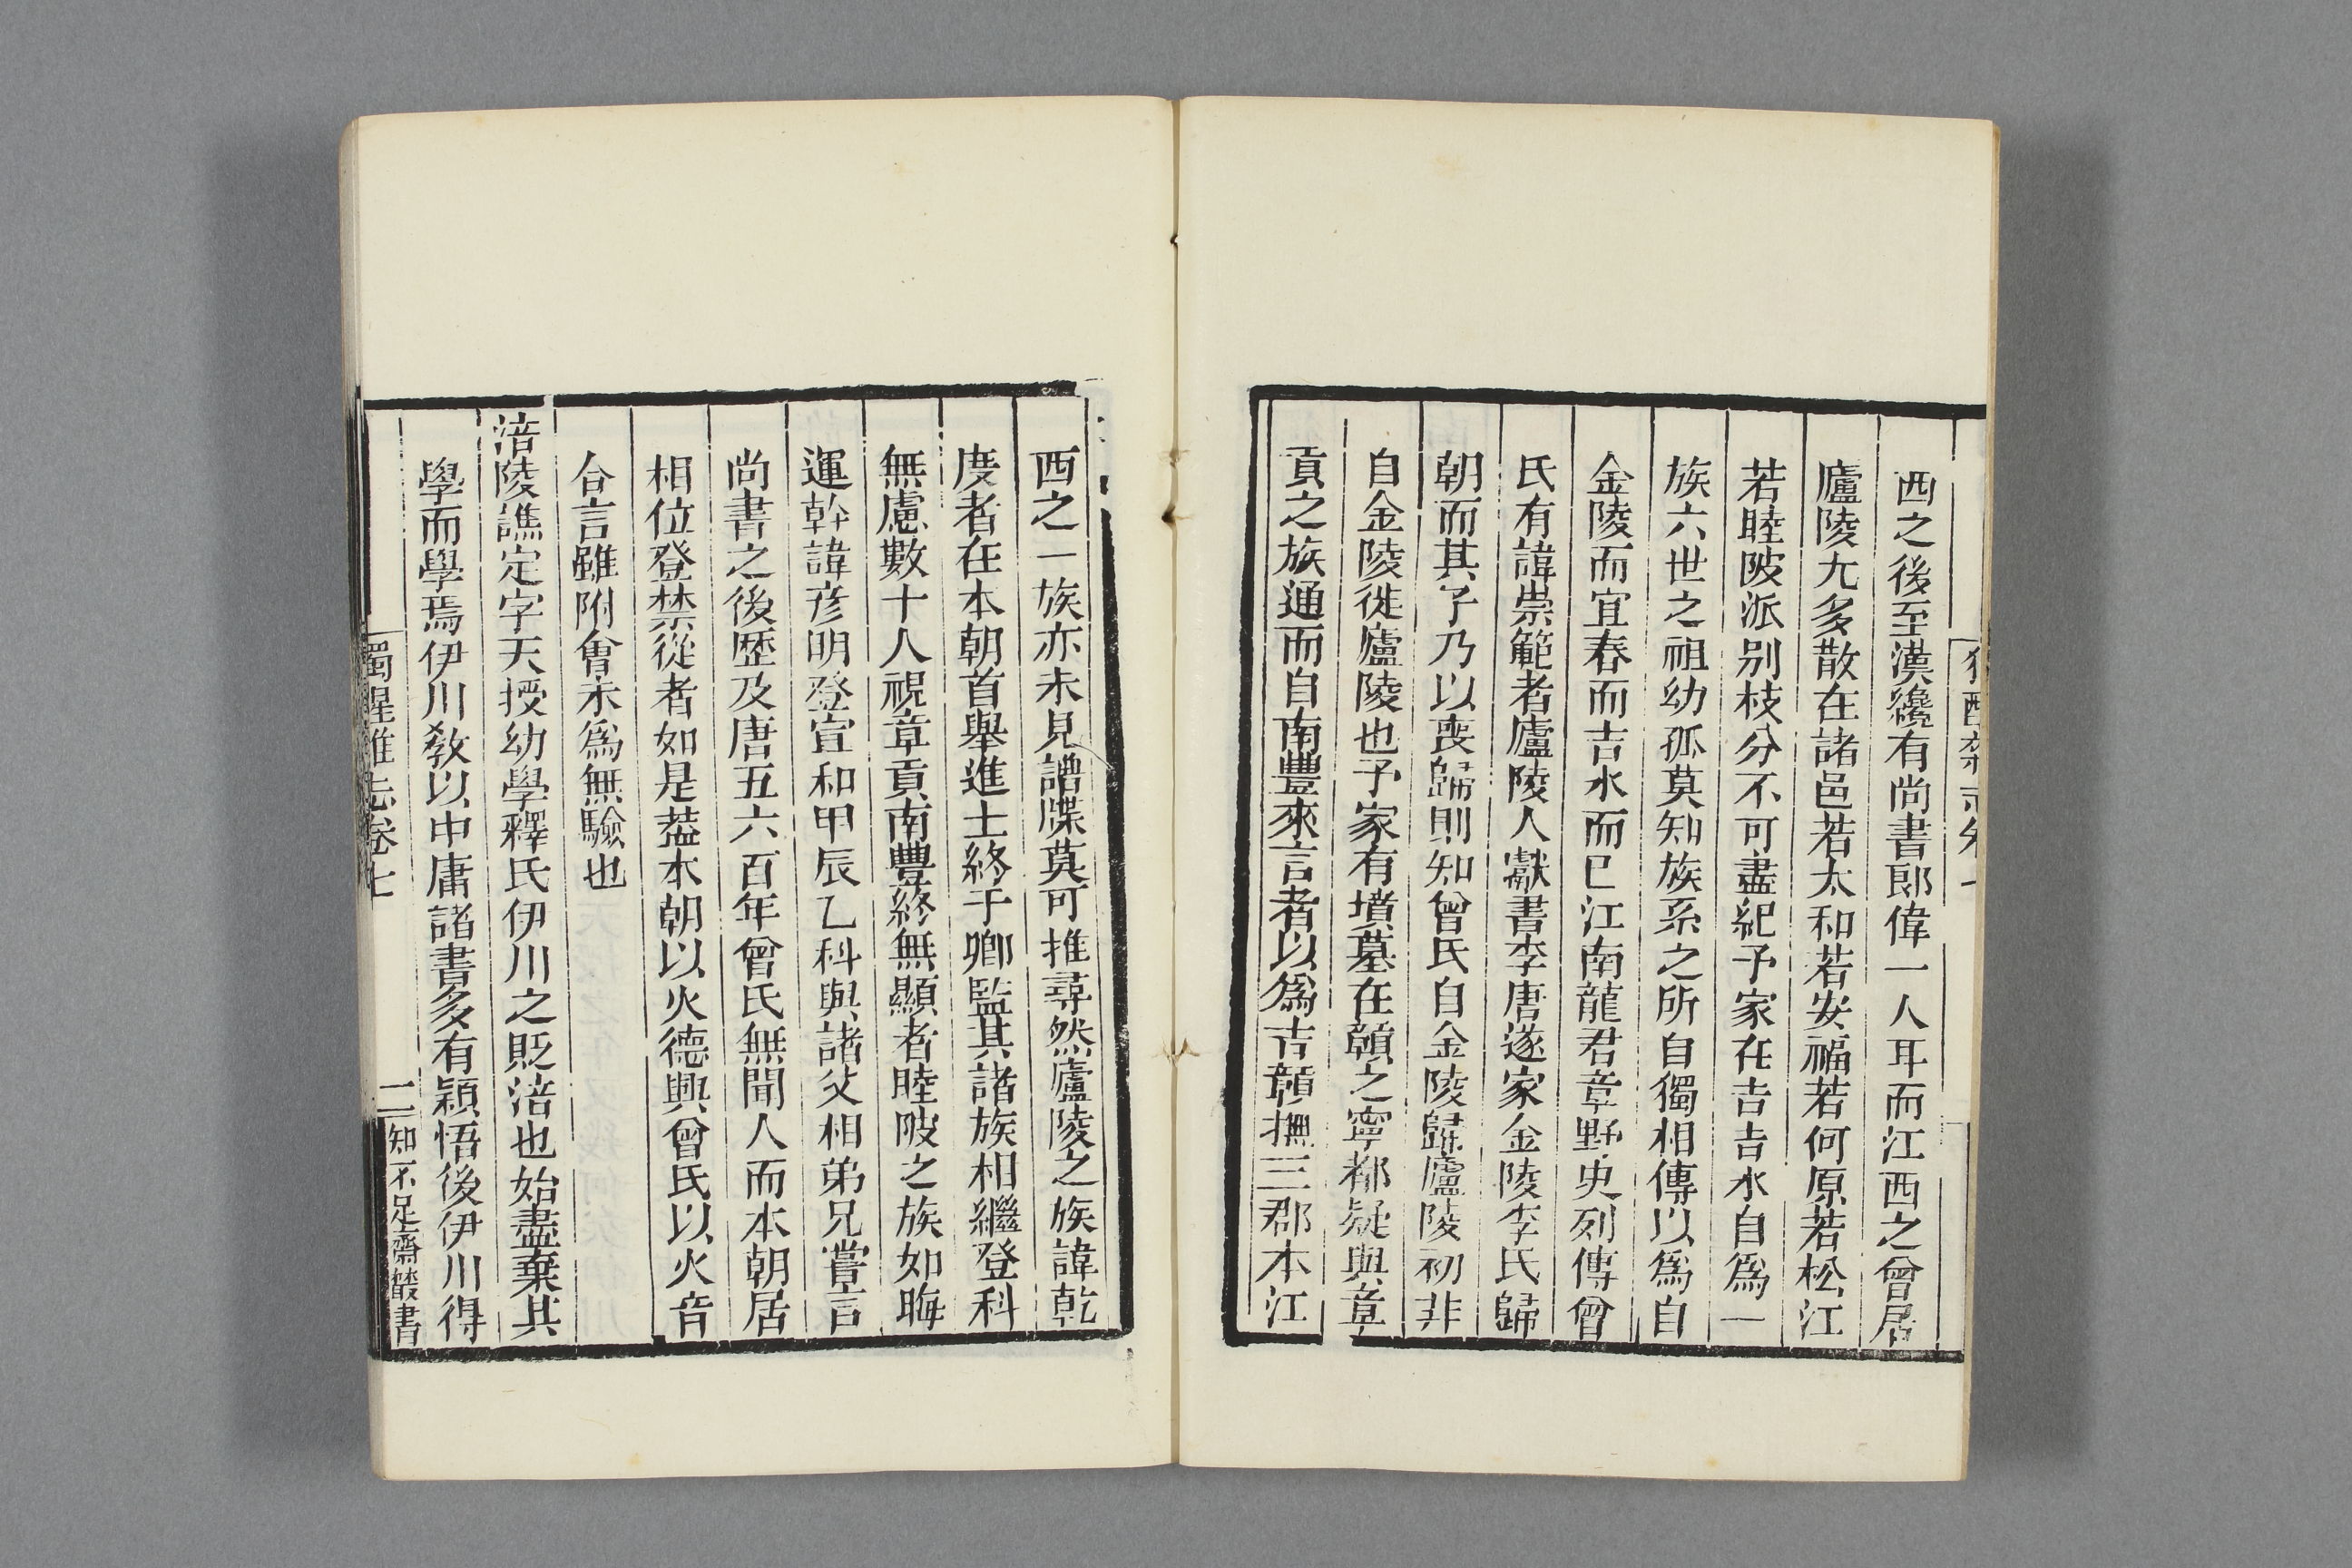 西之後至漢纔有尚書郎偉一人耳而江西之曾居
廬陵尤多散在諸邑若太和若安福若何原若松江
若睦陂派别枝分不可盡紀予家在吉吉水自爲一
族六世之祖幼孤莫知族系之所自獨相傳以爲自
金陵而宜春而吉水而巳江南龍君章野史列傳曾
氏有諱崇範者廬陵人獻書李唐遂家金陵李氏歸
朝而其子乃以喪歸則知曾氏自金陵歸廬陵初非
自金陵徙廬陵也予家有墳墓在贛之寧都疑與章
貢之族通而自南豐來言者以爲吉贛撫三郡本江
西之一族亦未見譜牒莫可推尋然廬陵之族諱乾
度者在本朝首舉進士終于卿監其諸族相繼登科
無慮數十人視章貢南豐終無顯者睦陂之族如晦
運幹諱彦明登宣和甲辰乙科與諸父相弟兄嘗言
尚書之後歷及唐五六百年曾氏無聞人而本朝居
相位登禁從者如是葢本朝以火德興曾氏以火音
合言雖附會未爲無驗也
涪陵譙定字天授幼學釋氏伊川之貶涪也始盡棄其
學而學焉伊川教以中庸諸書多有穎悟後伊川得
獨醒雜志卷七
二
知不足齋叢書